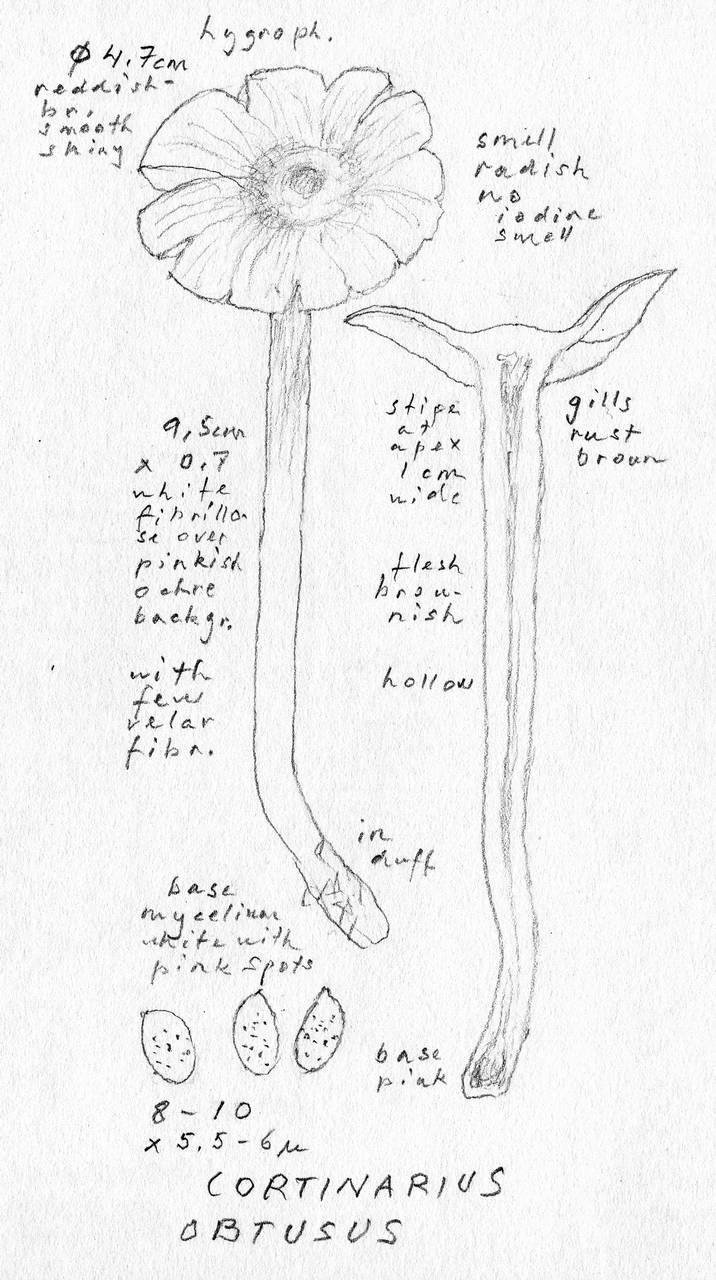 hygroph.
Ø 4.7cm
reddish-
br.
smooth
shiny
smell
radish
no
iodine
smell
9,5cm
x 0.7
white
fibrillo-
se over
pinkish
ochre
backgr.
with
few
velar
fibr.
stipe
at
apex
1 cm
wide
gills
rust
brown
flesh
brow-
nish
hollow
in
duff
base
mycelium
white with
pink spots
base
pink
8 - 10
x 5.5 - 6 µ
CORTINARIUS
OBTUSUS